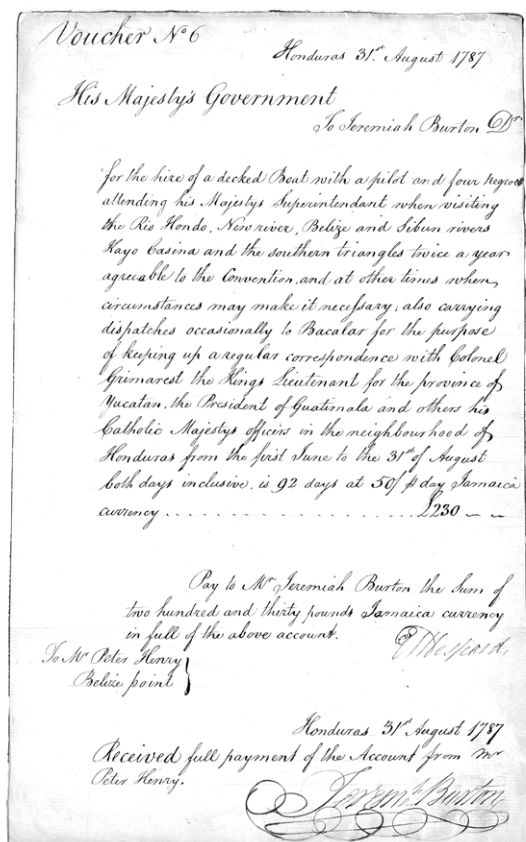 Voucher No 6
Honduras 31st. August 1787
His Majesty's Government
To Jeremiah Burton Dr
for the hire of a decked Boat with a pilot and four Negroes
attending his Majestys Superintendant when visiting
the Rio Hondo, New river, Belize and Sibun rivers
Kayo Casina and the southern triangles twice a year
agreeable to the Convention, and at other times when
circumstances may make it necessary; also carrying
dispatches occasionally to Bacalar for the purpose
of keeping up a regular correspondence with Colonel
Grimarest the Kings Lieutenant for the province of
Yucatan, the President of Guatimala and others his
Catholic Majestys officers in the neighbourhood of
Honduras from the first June to the 31st of August
both days inclusive, is 92 days at 50/ ⅌ day Jamaica
currency . . . . . . . . . . . . . . . . . . £230 " "
Pay to Mr Jeremiah Burton the Sum of
two hundred and thirty pounds Jamaica currency
in full of the above account.
E M Despard.
To Mr Peter Henry
Belize point
Honduras 31st August 1787
Received full payment of the Account from Mr
Peter Henry.
Jeremh Burton